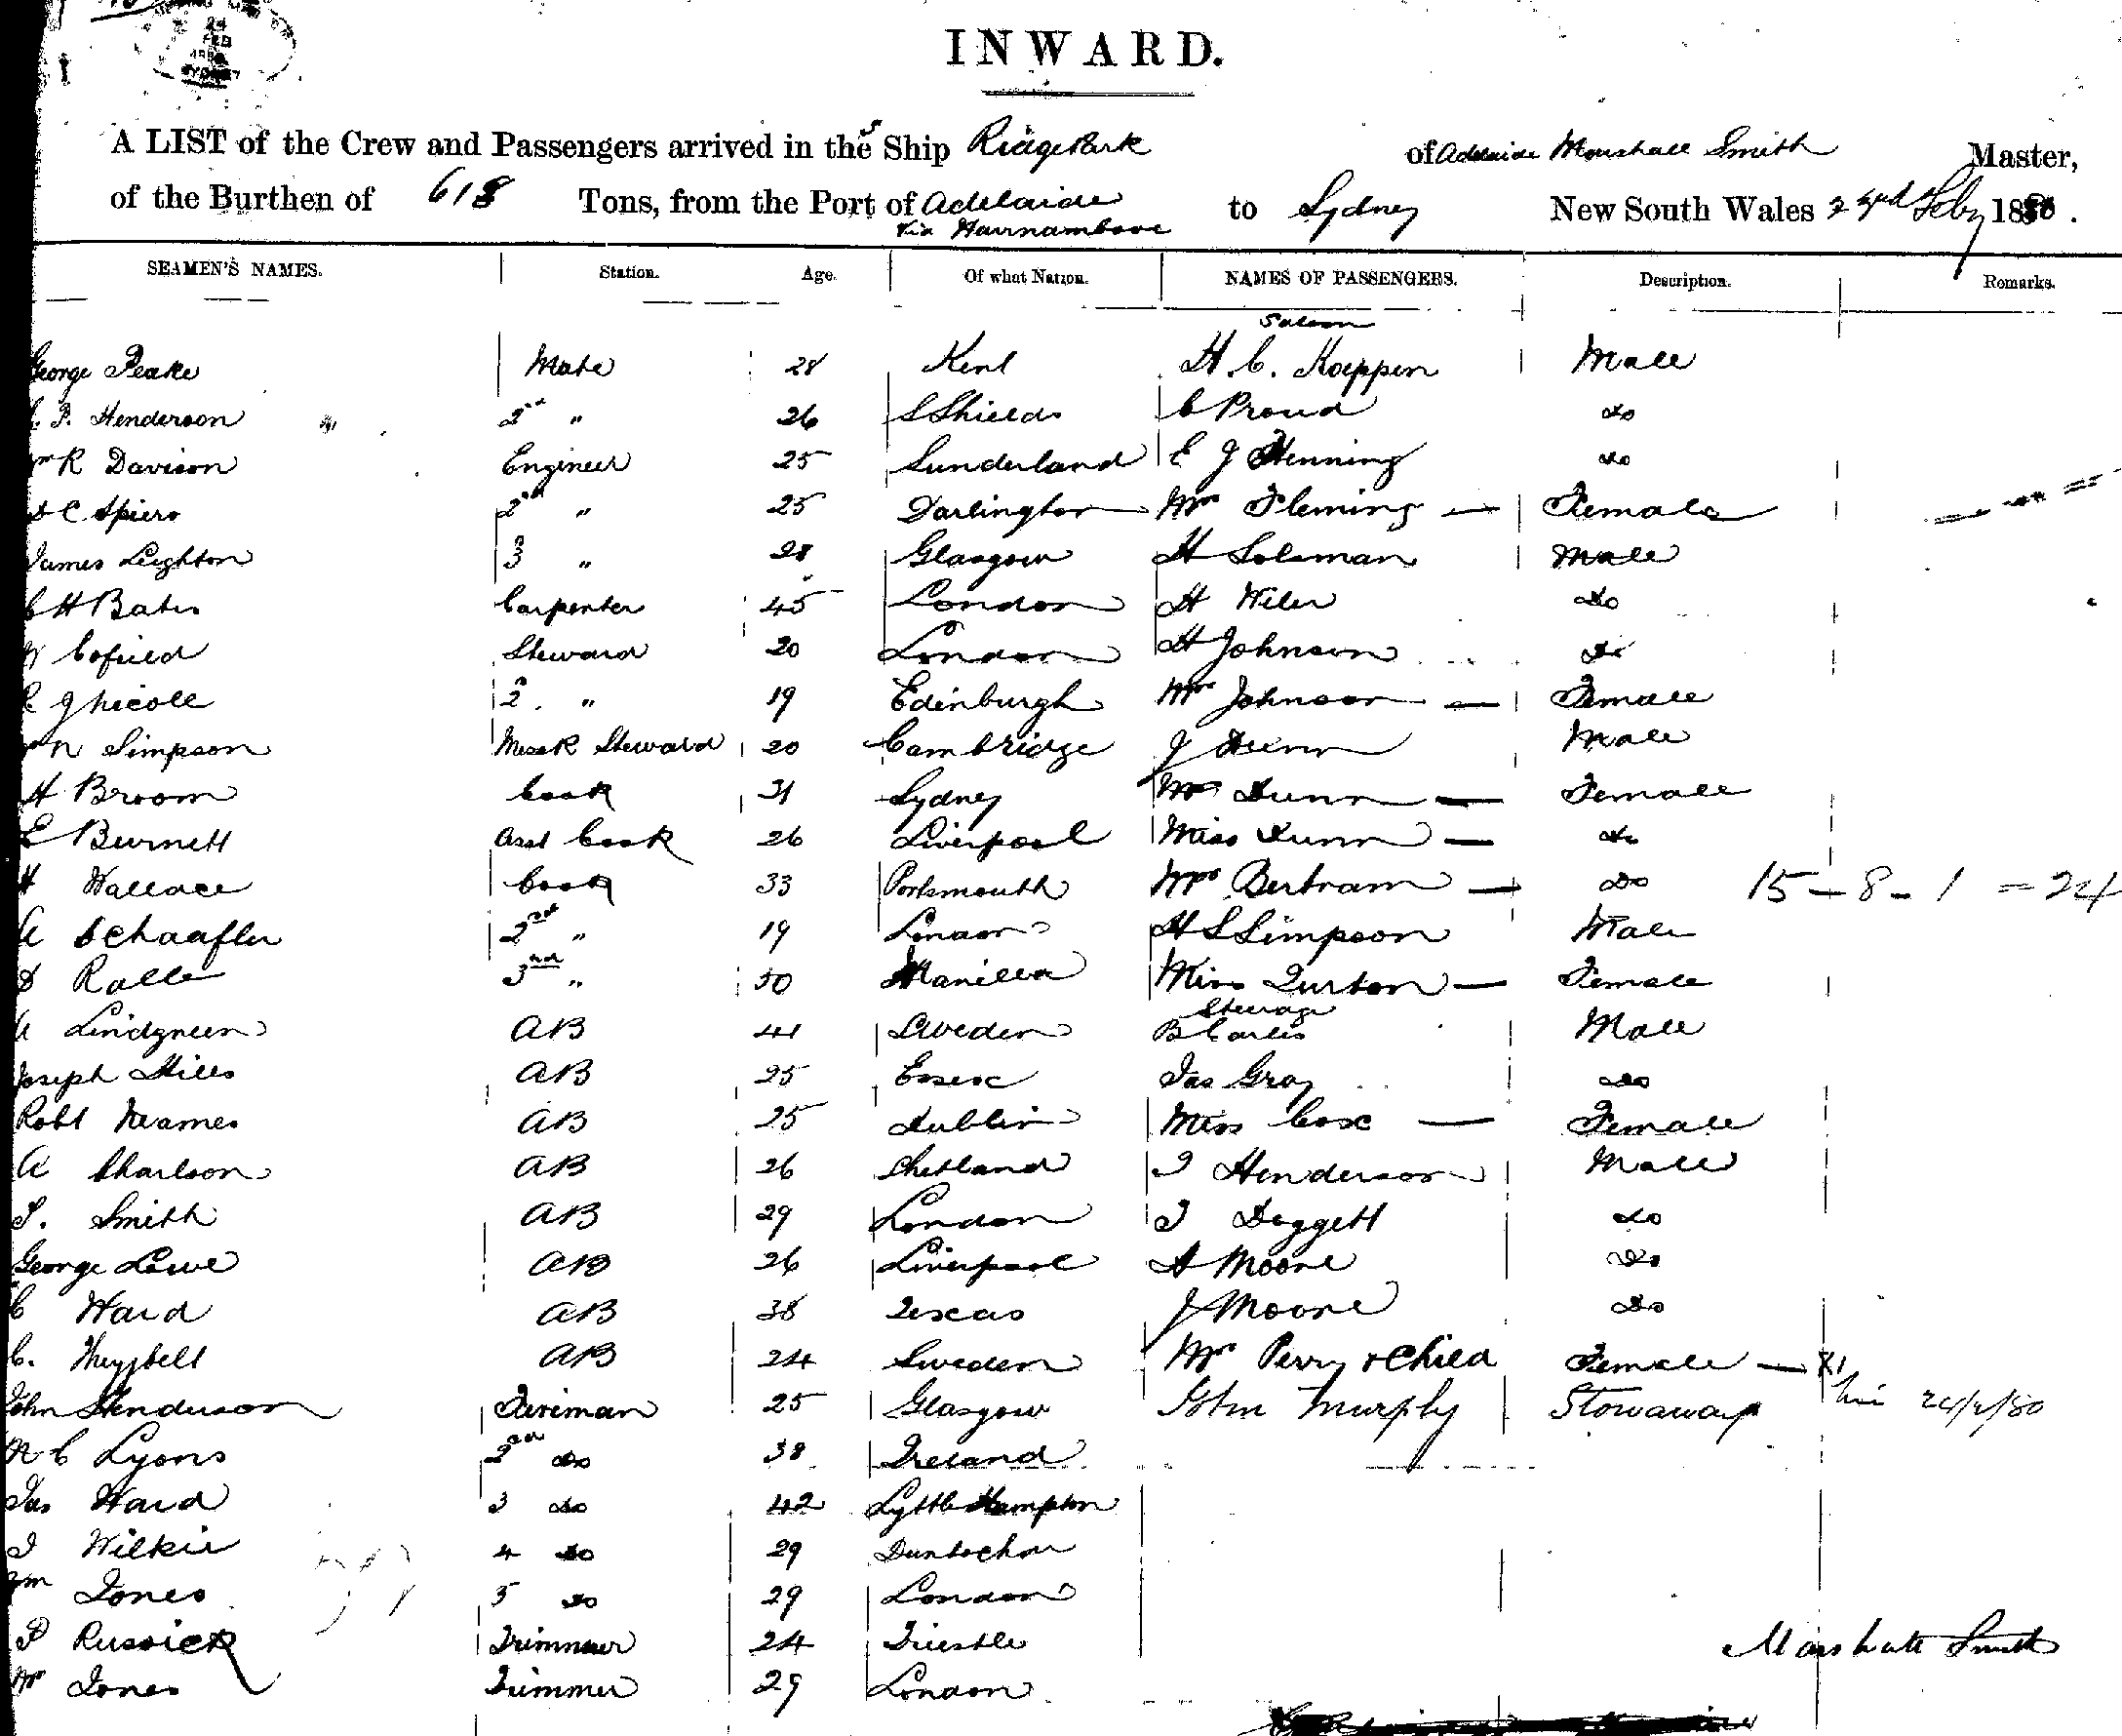 24
FEB
SYDNEY
INWARD.
A LIST of the Crew and Passengers arrived in the S Ship Ridge Park of Adelaide Marshall Smith Master,
of the Burthen of 618 Tons, from the Port of Adelaide to Sydney New South Wales 24th Feby 1880.
via
SEAMEN'S NAMES. Station. Age. Of what Nation. NAMES OF PASSENGERS. Description. Remarks.
Saloon
George Peake Mate 28 Kent H. C. Koeppen Male
P. Henderson 2nd " 26 S Shields C Proud do
R Davison Engineer 25 Sunderland E J Henning do
C Spiers 2nd " 25 Darlington Mrs Fleming — Female
James Leighton 3 " 28 Glasgow H Soloman Male
C H Bates Carpenter 45 London H Wiler do
W Cofield Steward 20 London H Johnson do
R J Nicoll 2 " 19 Edinburgh Mrs Johnson — Female
Simpson Mess R Steward 20 Cambridge J Dunn Male
H Broom Cook 31 Sydney Mrs Dunn — Female
E Burnett Asst Cook 26 Liverpool Miss Dunn — do
H Wallace Cook 33 Portsmouth Mrs Bertram — do 15 – 8 – 1 = 24
19 London H S Simpson Male
Ralle 3rd " 50 Manilla Miss Turton — Female
Steerage
Lindgreen AB 41 Sweden B Carlis Male
Joseph Hills AB 25 Essex Jas Gray do
Robt Neames AB 25 Dublin Miss Cox — Female
A Charlson AB 26 Shetland J Henderson Male
S. Smith AB 29 London J Doggett do
George Lowe AB 26 Liverpool A Moore do
C Ward AB 38 Texas J Moore do
C. AB 24 Sweden Mrs Perry & Child Female — X1
John Henderson Fireman 25 Glasgow John Murphy Stowaway 24/2/80
Lyons 2nd do 38 Ireland
Jas Ward 3 do 42 Lyttle Hampton
J Wilkie 4 do 29 Duntocher
Wm Jones 5 do 29 London
P Russick Trimmer 24 Trieste Marshall Smith
Wm Jones Trimmer 29 London